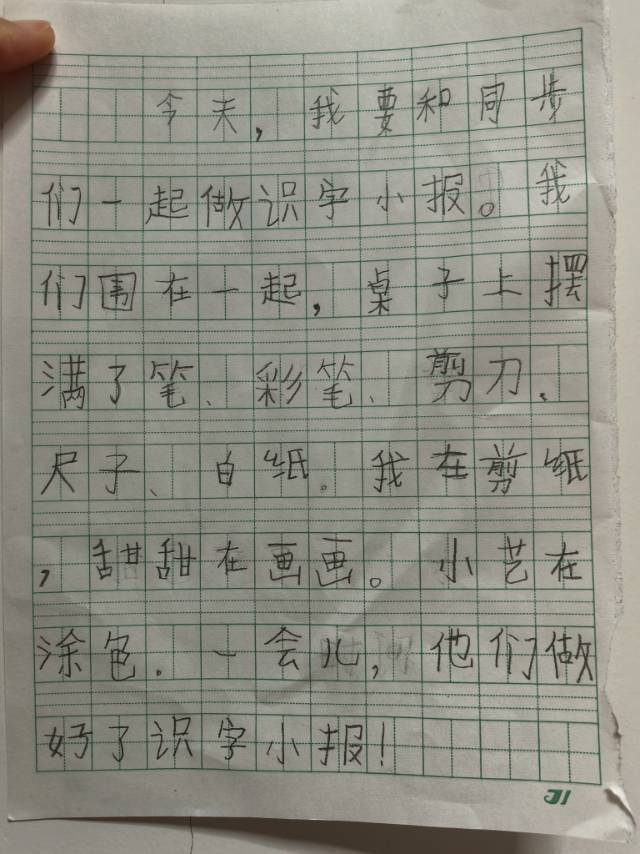 今天，我要和同步
们一起做识字小报。我
们围在一起，桌子上摆
满了笔、彩笔、剪刀、
尺子、白纸。我在剪纸
，甜甜在画画。小艺在
涂色。一会儿，他们做
好了识字小报！
31